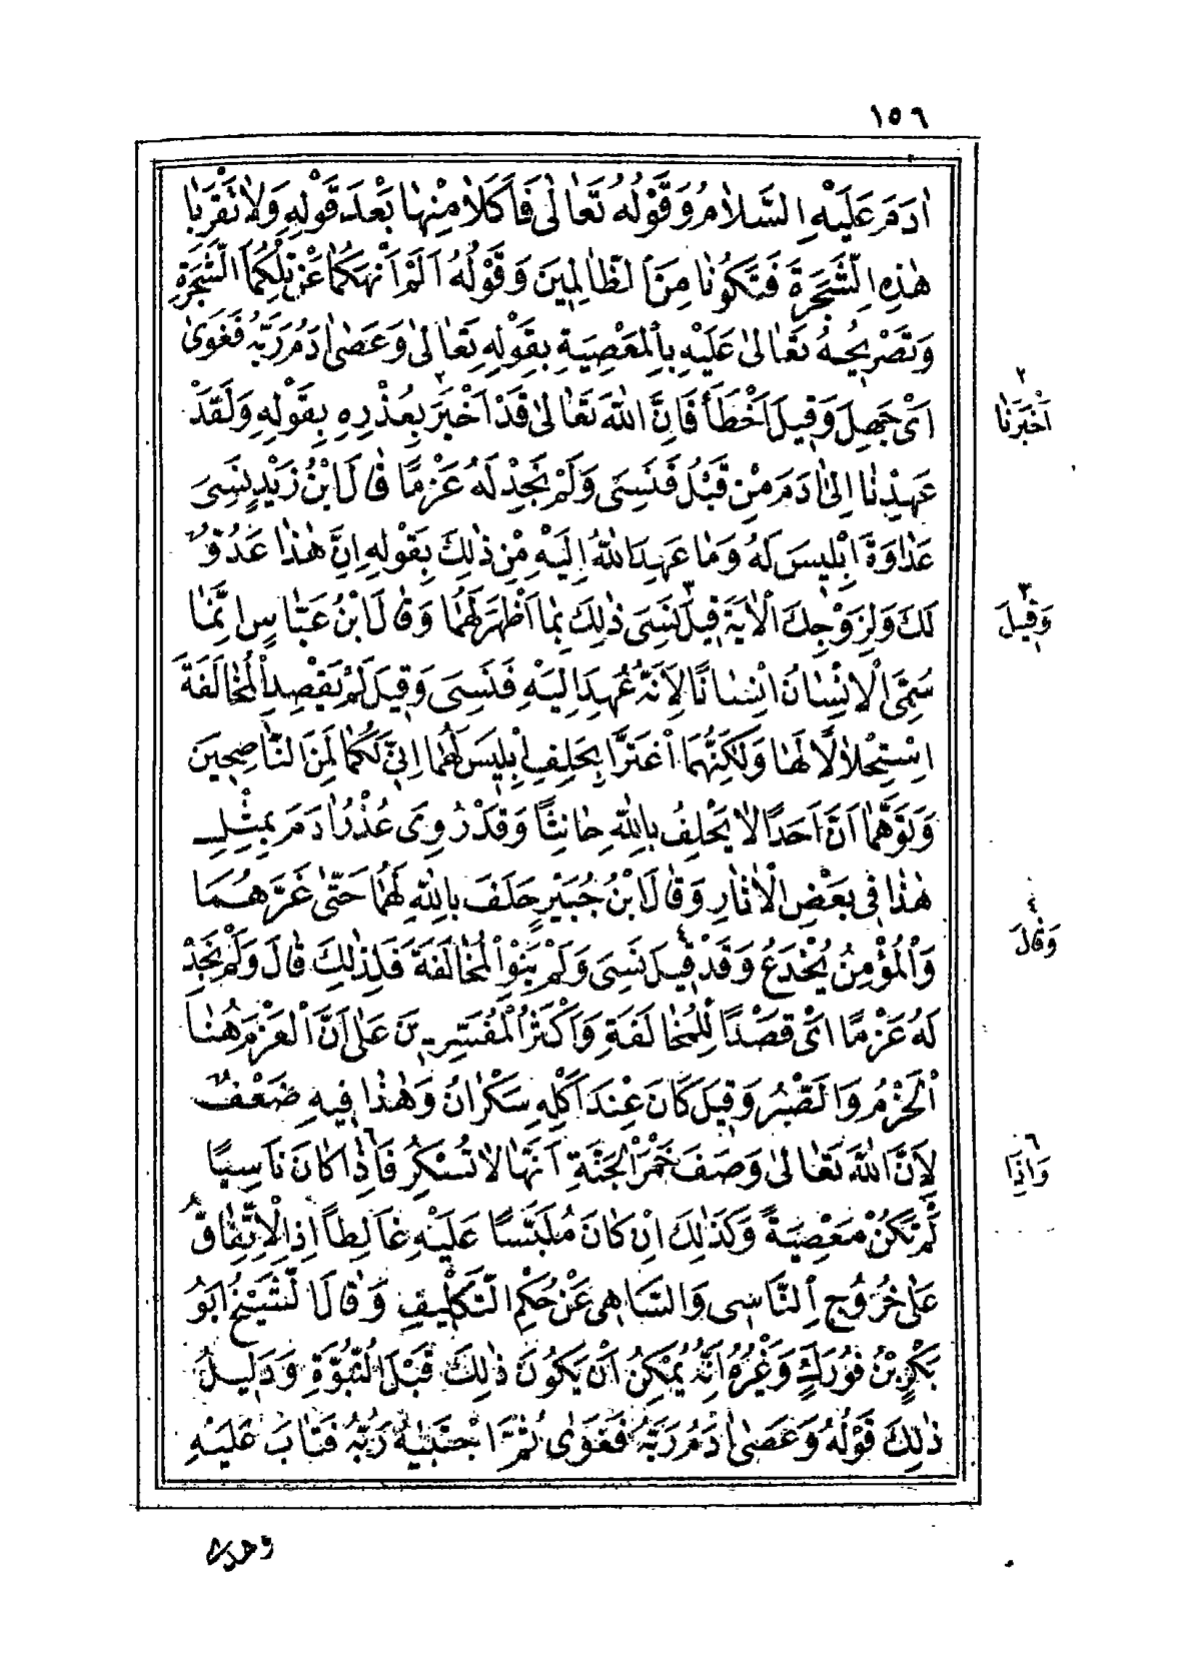 ١٥٦
اٰدَمَ عَلَيْهِ السَّلَامُ وَقَوْلُهُ تَعَالٰى فَاَكَلَا مِنْهَا بَعْدَ قَوْلِهِ وَلَا تَقْرَبَا
هٰذِهِ الشَّجَرَةَ فَتَكُونَا مِنَ الظَّالِمِينَ وَقَوْلُهُ اَلَمْ اَنْهَكُمَا عَنْ تِلْكُمَا الشَّجَرَةِ
وَتَصْرِيحُهُ تَعَالٰى عَلَيْهِ بِالْمَعْصِيَةِ بِقَوْلِهِ تَعَالٰى وَعَصٰى اٰدَمُ رَبَّهُ فَغَوٰى
اَىْ جَهِلَ وَقِيلَ اَخْطَأَ فَاِنَّ اللهَ تَعَالٰى قَدْ اَخْبَرَ ٢ بِعُذْرِهِ بِقَوْلِهِ وَلَقَدْ
٢ اَخْبَرَنَا
عَهِدْنَا اِلٰى اٰدَمَ مِنْ قَبْلُ فَنَسِىَ وَلَمْ نَجِدْ لَهُ عَزْمًا قَالَ ابْنُ زَيْدٍ نَسِىَ
عَدَاوَةَ اِبْلِيسَ لَهُ وَمَا عَهِدَ اللهُ اِلَيْهِ مِنْ ذٰلِكَ بِقَوْلِهِ اِنَّ هٰذَا عَدُوٌّ
لَكَ وَلِزَوْجِكَ الْاٰيَةَ قِيلَ ٣ نَسِىَ ذٰلِكَ بِمَا اَظْهَرَ لَهُمَا وَقَالَ ابْنُ عَبَّاسٍ اِنَّمَا
٣ وَقِيلَ
سُمِّىَ الْاِنْسَانُ اِنْسَانًا لِاَنَّهُ عُهِدَ اِلَيْهِ فَنَسِىَ وَقِيلَ لَمْ يَقْصِدِ الْمُخَالَفَةَ
اسْتِحْلَالًا لَهَا وَلٰكِنَّهُمَا اغْتَرَّا بِحَلِفِ اِبْلِيسَ لَهُمَا اِنِّى لَكُمَا لَمِنَ النَّاصِحِينَ
وَتَوَهَّمَا اَنَّ اَحَدًا لَا يَحْلِفُ بِاللهِ حَانِثًا وَقَدْ رُوِىَ عُذْرُ اٰدَمَ بِمِثْلِ
هٰذَا فِى بَعْضِ الْاٰثَارِ وَقَالَ ابْنُ جُبَيْرٍ حَلَفَ بِاللهِ لَهُمَا حَتّٰى غَرَّهُمَا
وَالْمُؤْمِنُ يُخْدَعُ وَقَدْ قِيلَ ٤ نَسِىَ وَلَمْ يَنْوِ الْمُخَالَفَةَ فَلِذٰلِكَ قَالَ وَلَمْ نَجِدْ
٤ وَقَالَ
لَهُ عَزْمًا اَىْ قَصْدًا لِلْمُخَالَفَةِ وَاَكْثَرُ الْمُفَسِّرِينَ عَلٰى اَنَّ الْعَزْمَ هُنَا
الْحَزْمُ وَالصَّبْرُ وَقِيلَ كَانَ عِنْدَ اَكْلِهِ سَكْرَانَ وَهٰذَا فِيهِ ضَعْفٌ
لِاَنَّ اللهَ تَعَالٰى وَصَفَ خَمْرَ الْجَنَّةِ اَنَّهَا لَا تُسْكِرُ فَاِذَا ٦ كَانَ نَاسِيًا
٦ وَاِذَا
لَمْ تَكُنْ مَعْصِيَةً وَكَذٰلِكَ اِنْ كَانَ مُلَبَّسًا عَلَيْهِ غَالِطًا اِذِ الْاِتِّفَاقُ
عَلٰى خُرُوجِ النَّاسِى وَالسَّاهِى عَنْ حُكْمِ التَّكْلِيفِ وَقَالَ الشَّيْخُ اَبُو
بَكْرِ بْنُ فُورَكٍ وَغَيْرُهُ اِنَّهُ يُمْكِنُ اَنْ يَكُونَ ذٰلِكَ قَبْلَ النُّبُوَّةِ وَدَلِيلُ
ذٰلِكَ قَوْلُهُ وَعَصٰى اٰدَمُ رَبَّهُ فَغَوٰى ثُمَّ اجْتَبٰيهُ رَبُّهُ فَتَابَ عَلَيْهِ
وهدى